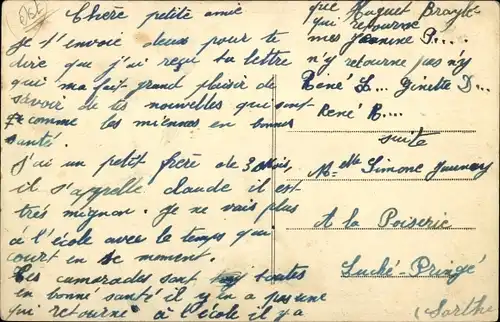 Chère petite amie
Je t'envoie deux pour te
dire que j'ai reçu ta lettre
qui ma fait grand plaisir de
savoir de tes nouvelles qui sont
comme les miennes en bonne
santé.
J'ai un petit frère de 3 mois,
il s'appelle claude il est
très mignon. Je ne vais plus
à l'école avec le temps qui
court en se moment.
Les camarades sont toutes
en bonne santé il y en a pas une
qui retourne à l'école il y a
que Huguet
qui retourne
mes Jeanine P....
n'y retourne pas n'y
René L... Ginette D...
René R....
suite
Melle Simone
A la Poiserie
Luché-Pringé
(Sarthe